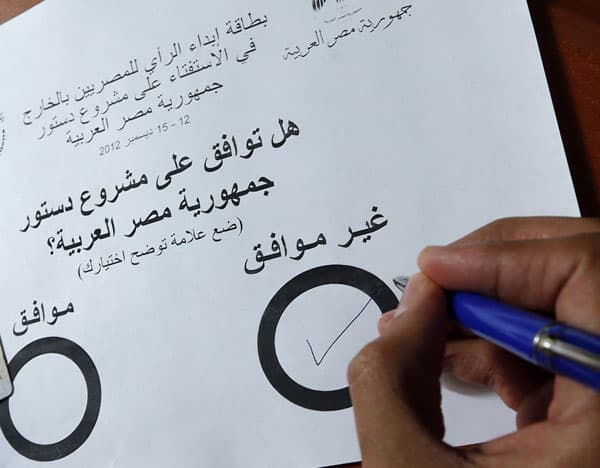 جمهورية مصر العربية
بطاقة إبداء الرأي للمصريين بالخارج
في الاستفتاء على مشروع دستور
جمهورية مصر العربية
12 – 15 ديسمبر 2012
هل توافق على مشروع دستور
جمهورية مصر العربية؟
(ضع علامة توضح اختيارك)
غير موافق
موافق